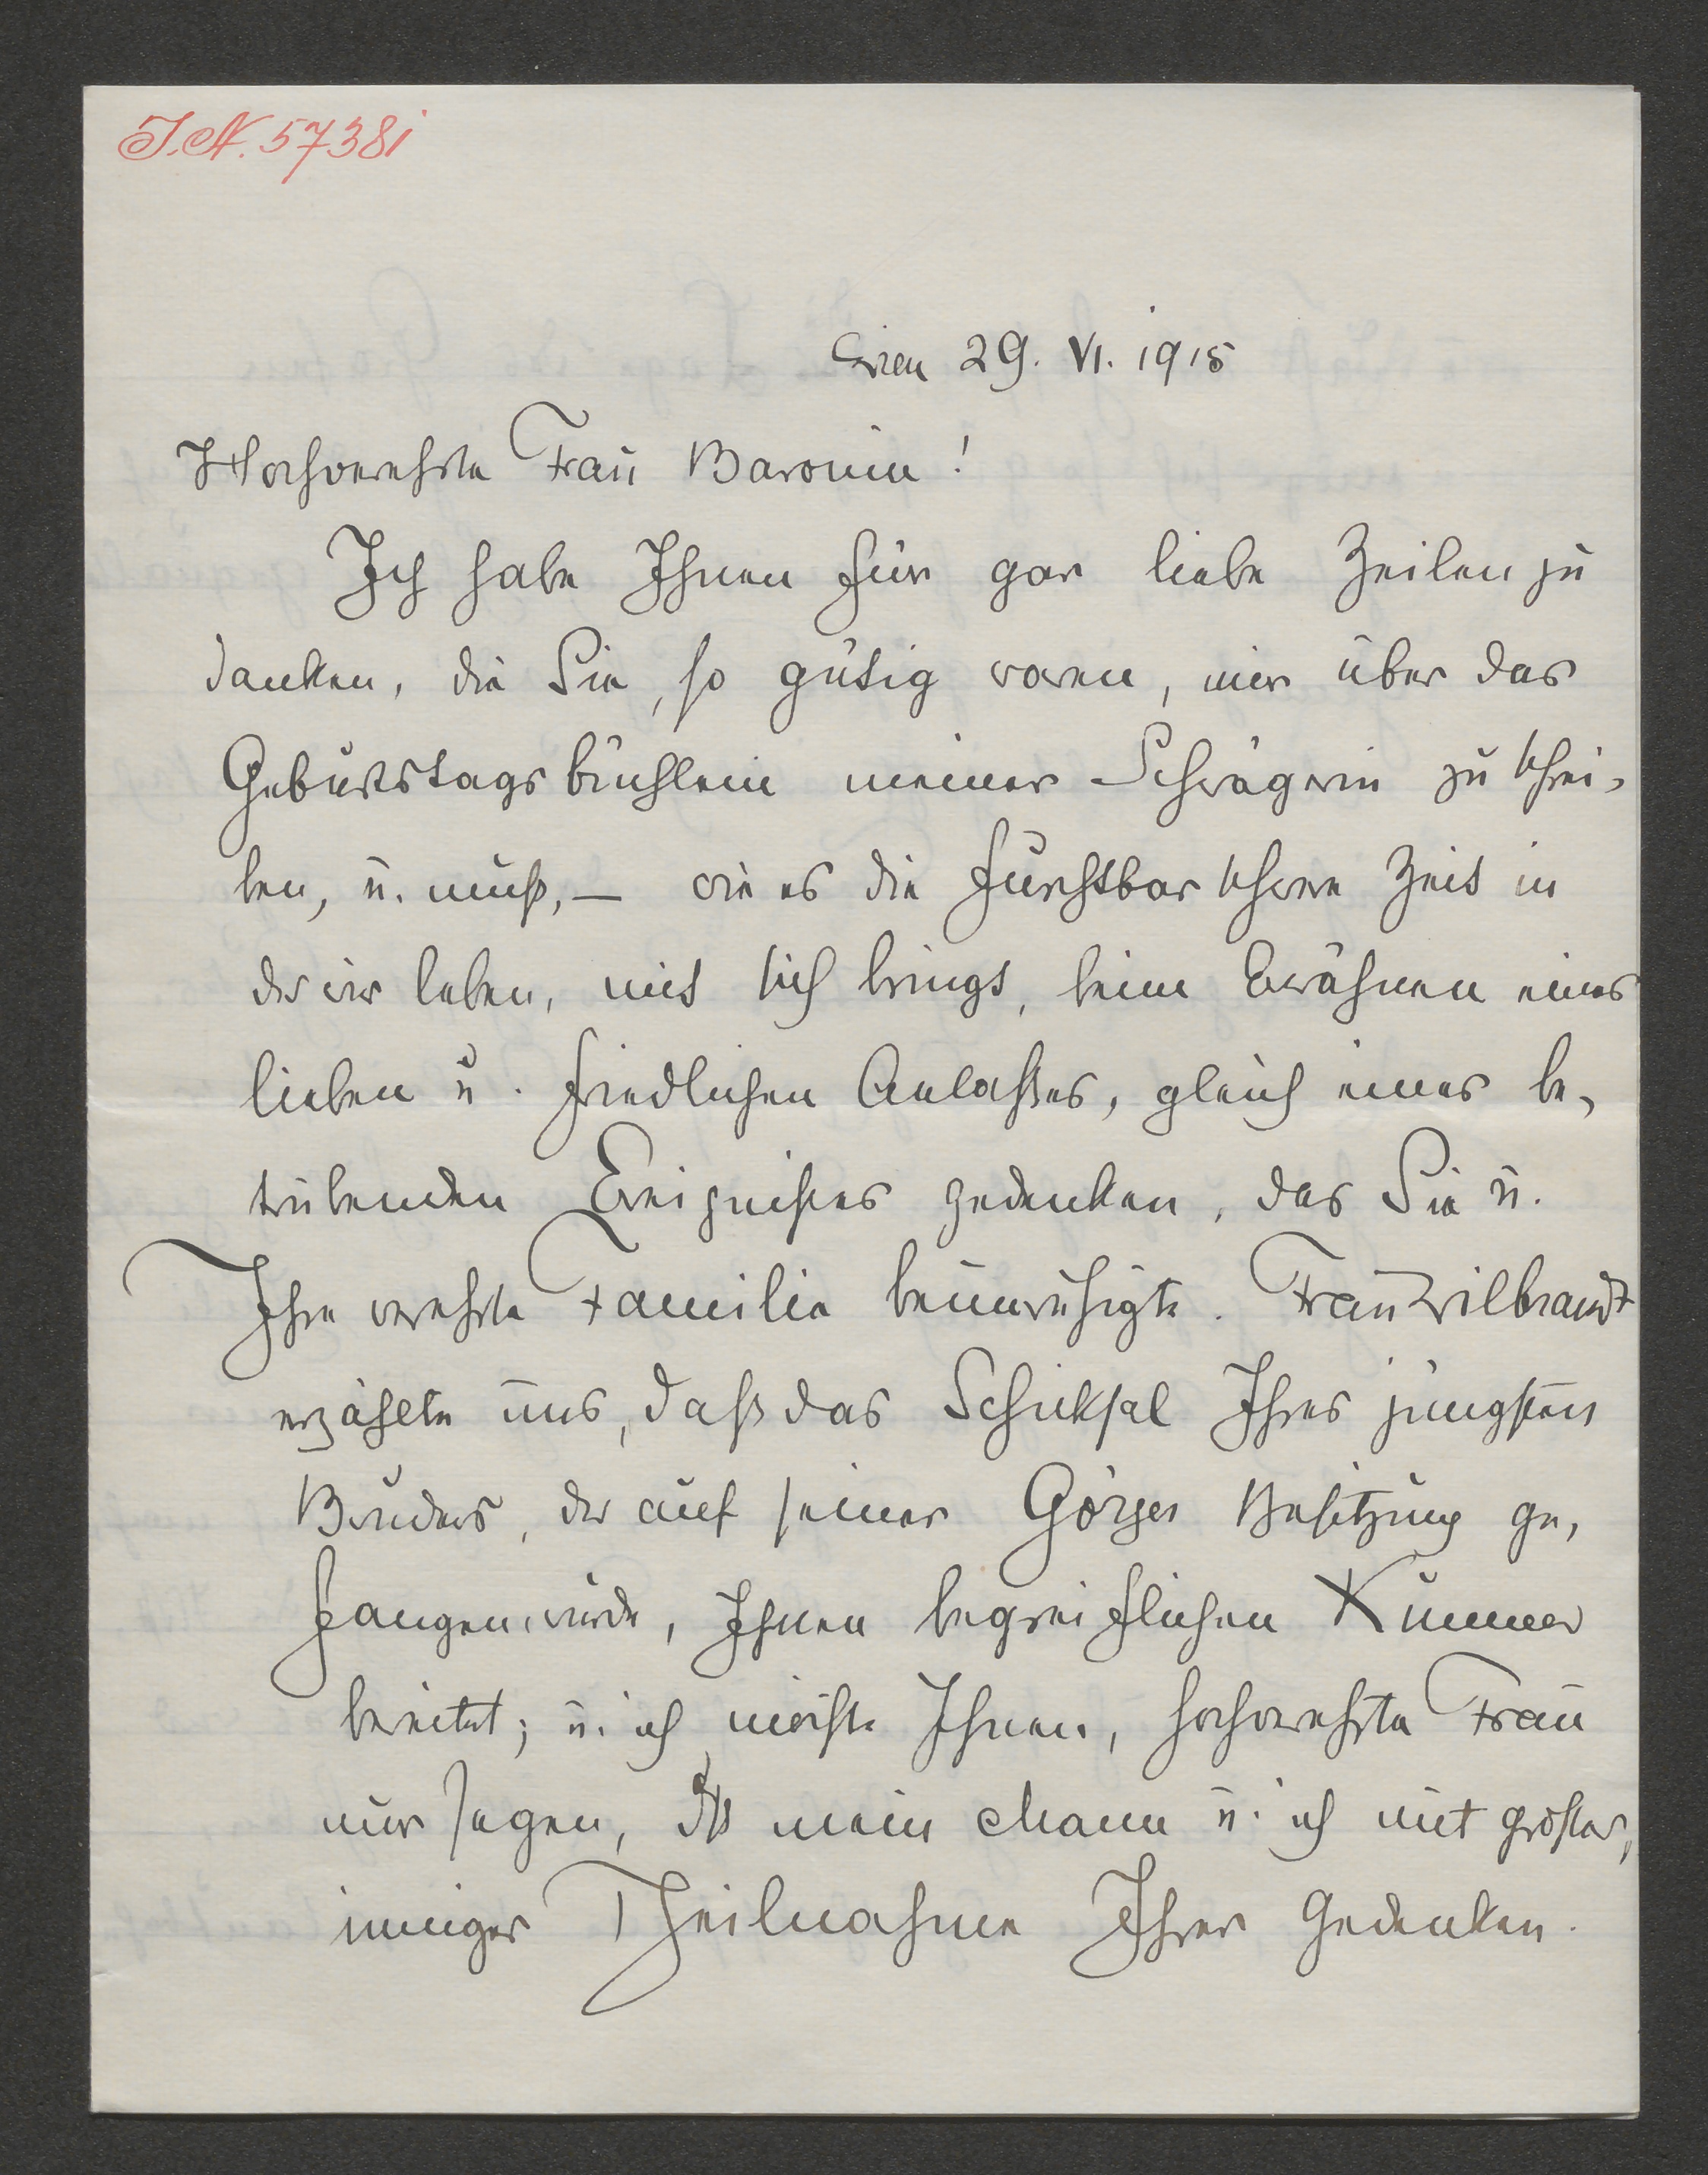 J.N. 57381
Wien 29. VI. 1915
Hochverehrte Frau Baronin!
Ich habe Ihnen für gar liebe Zeilen zu
danken, die Sie, so gütig waren, mir über das
Geburtstagsbüchlein meiner Schwägerin zu schrei-
ben, u. muß, – wie es die furchtbar schwere Zeit in
der wir leben, mit sich bringt, beim Erwähnen eines
lieben u. friedlichen Anlaßes, gleich eines be-
trübenden Ereignißes gedenken, das Sie u.
Ihre verehrte Familie beunruhigte. Frau Wilbrandt
erzählte uns, daß das Schicksal Ihres jüngsten
Bruders, der auf seiner Görzer Besitzung ge-
fangen wurde, Ihnen begreiflichen Kummer
bereitet; u. ich möchte Ihnen, hochverehrte Frau
nur sagen, daß mein Mann u. ich mit größter,
inniger Theilnahme Ihrer gedenken.